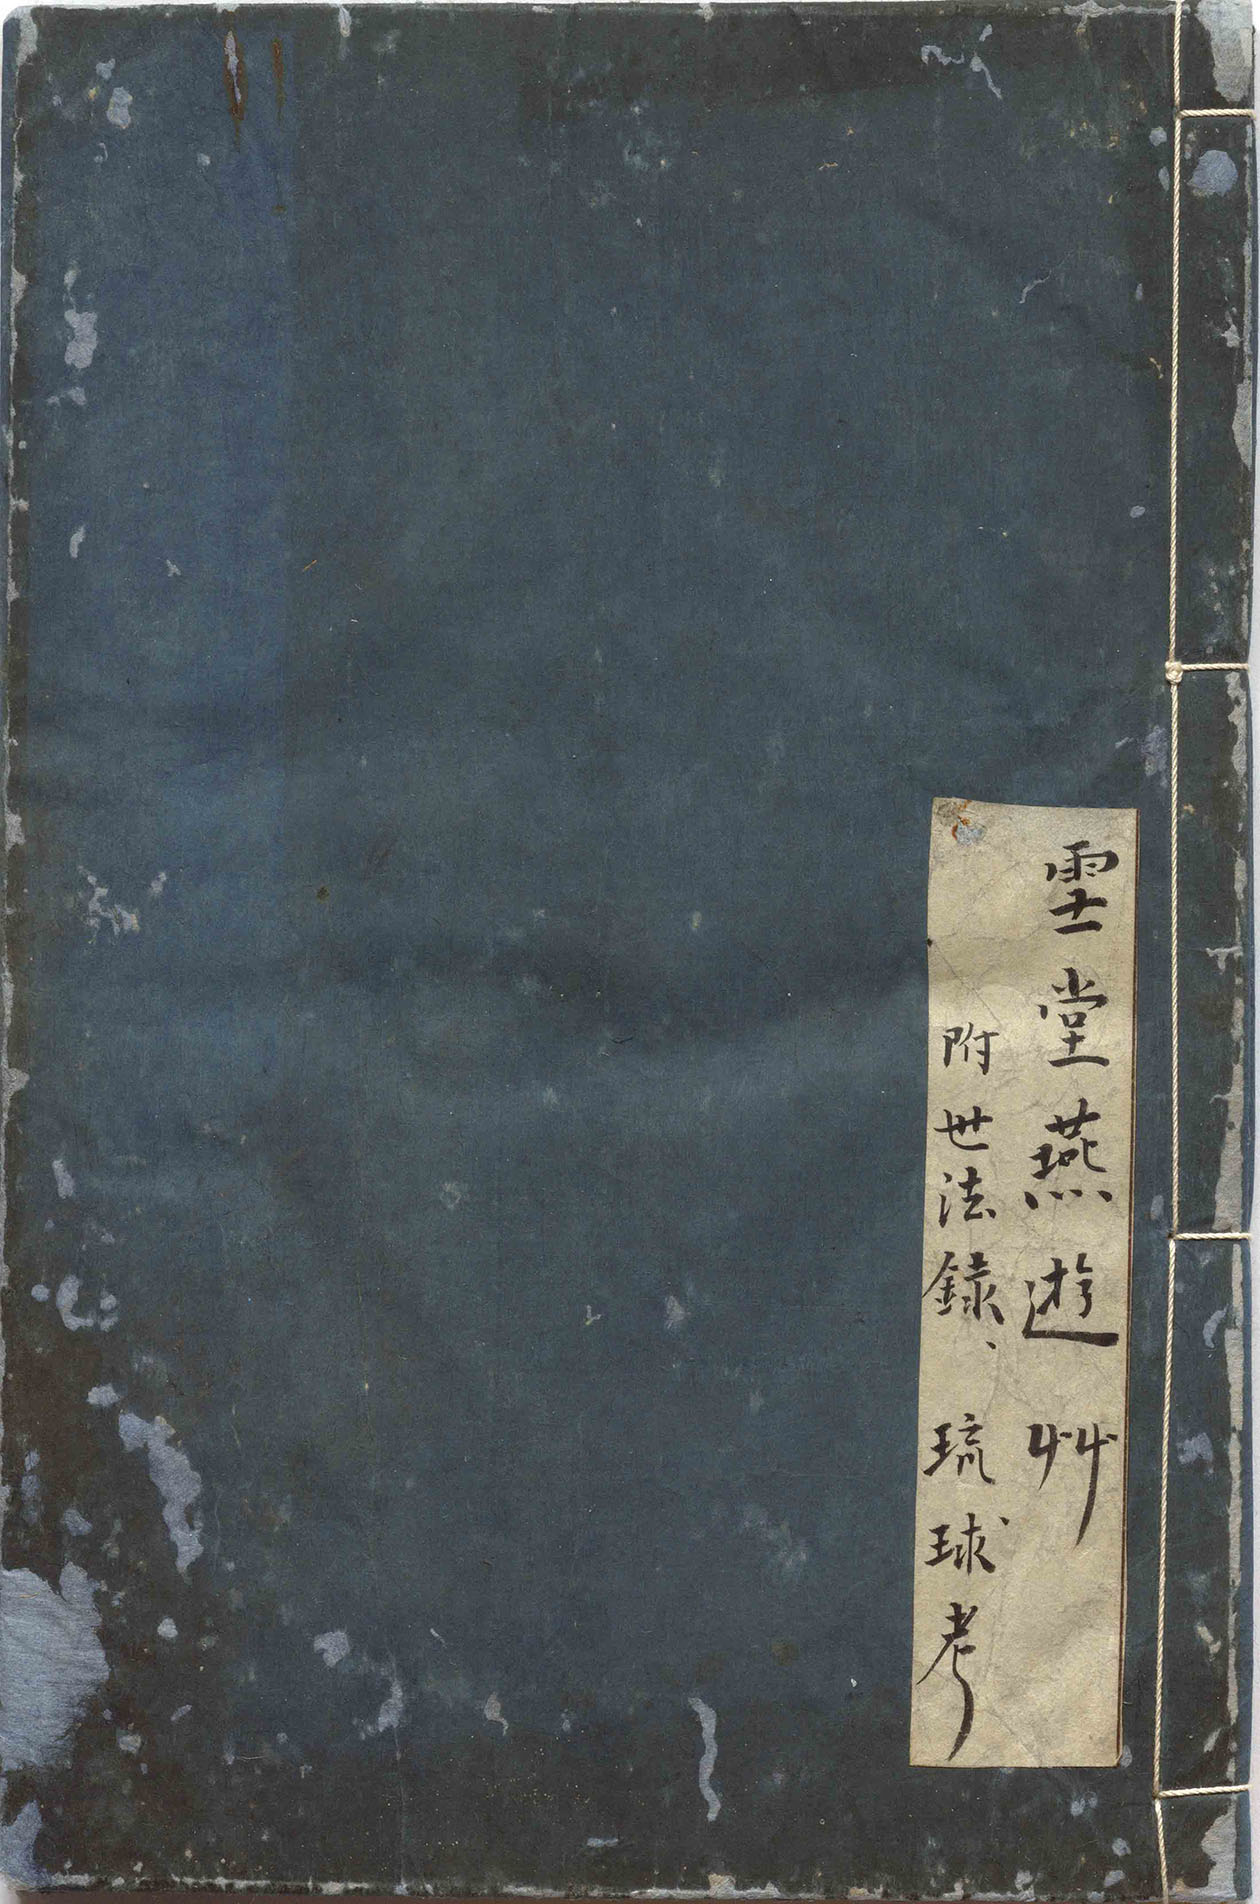 雪堂燕遊艸
附世法録、琉球考